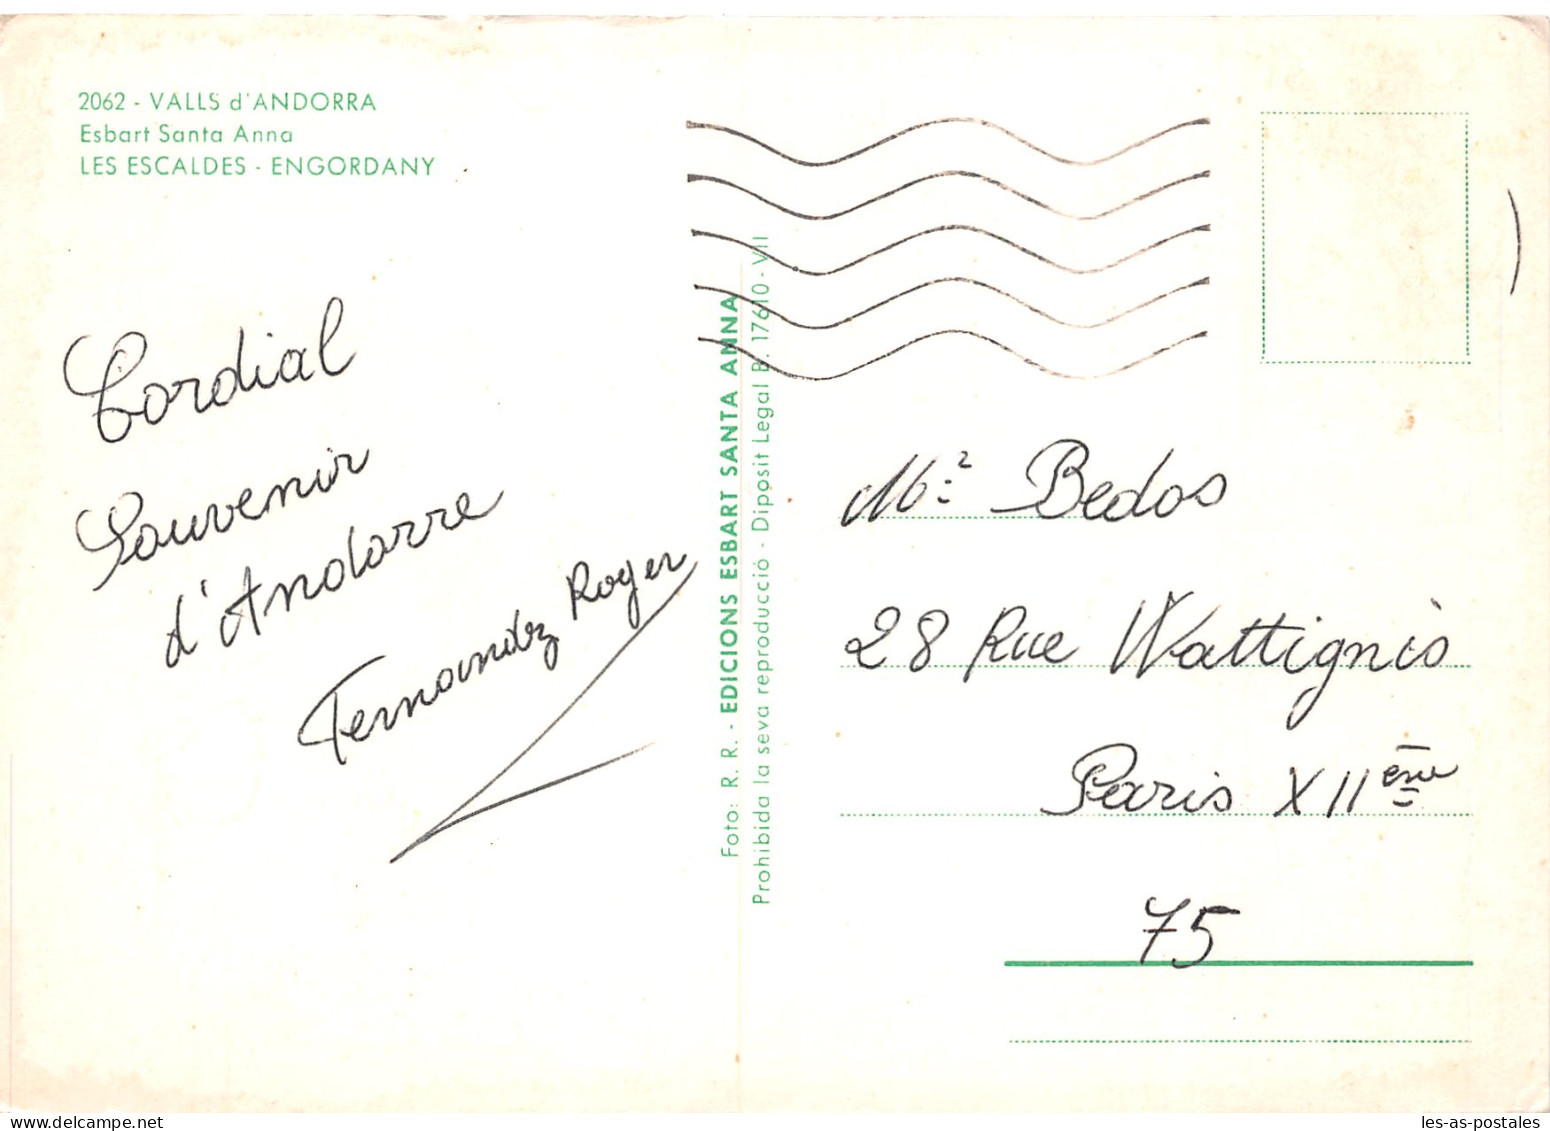 2062 - VALLS d'ANDORRA
Esbart Santa Anna
LES ESCALDES - ENGORDANY
Cordial
Souvenir
d'Andorre
Fernandez Roger
Foto: R. R. - EDICIONS ESBART SANTA ANNA
Prohibida la seva reproducció - Diposit Legal B. 17610 - VII
Mr Bedos
28 Rue Wattignis
Paris XIIème
75
les-as-postales